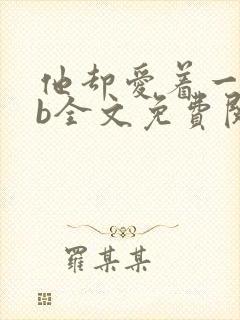 他却爱着一
b全文免費閱
羅某某